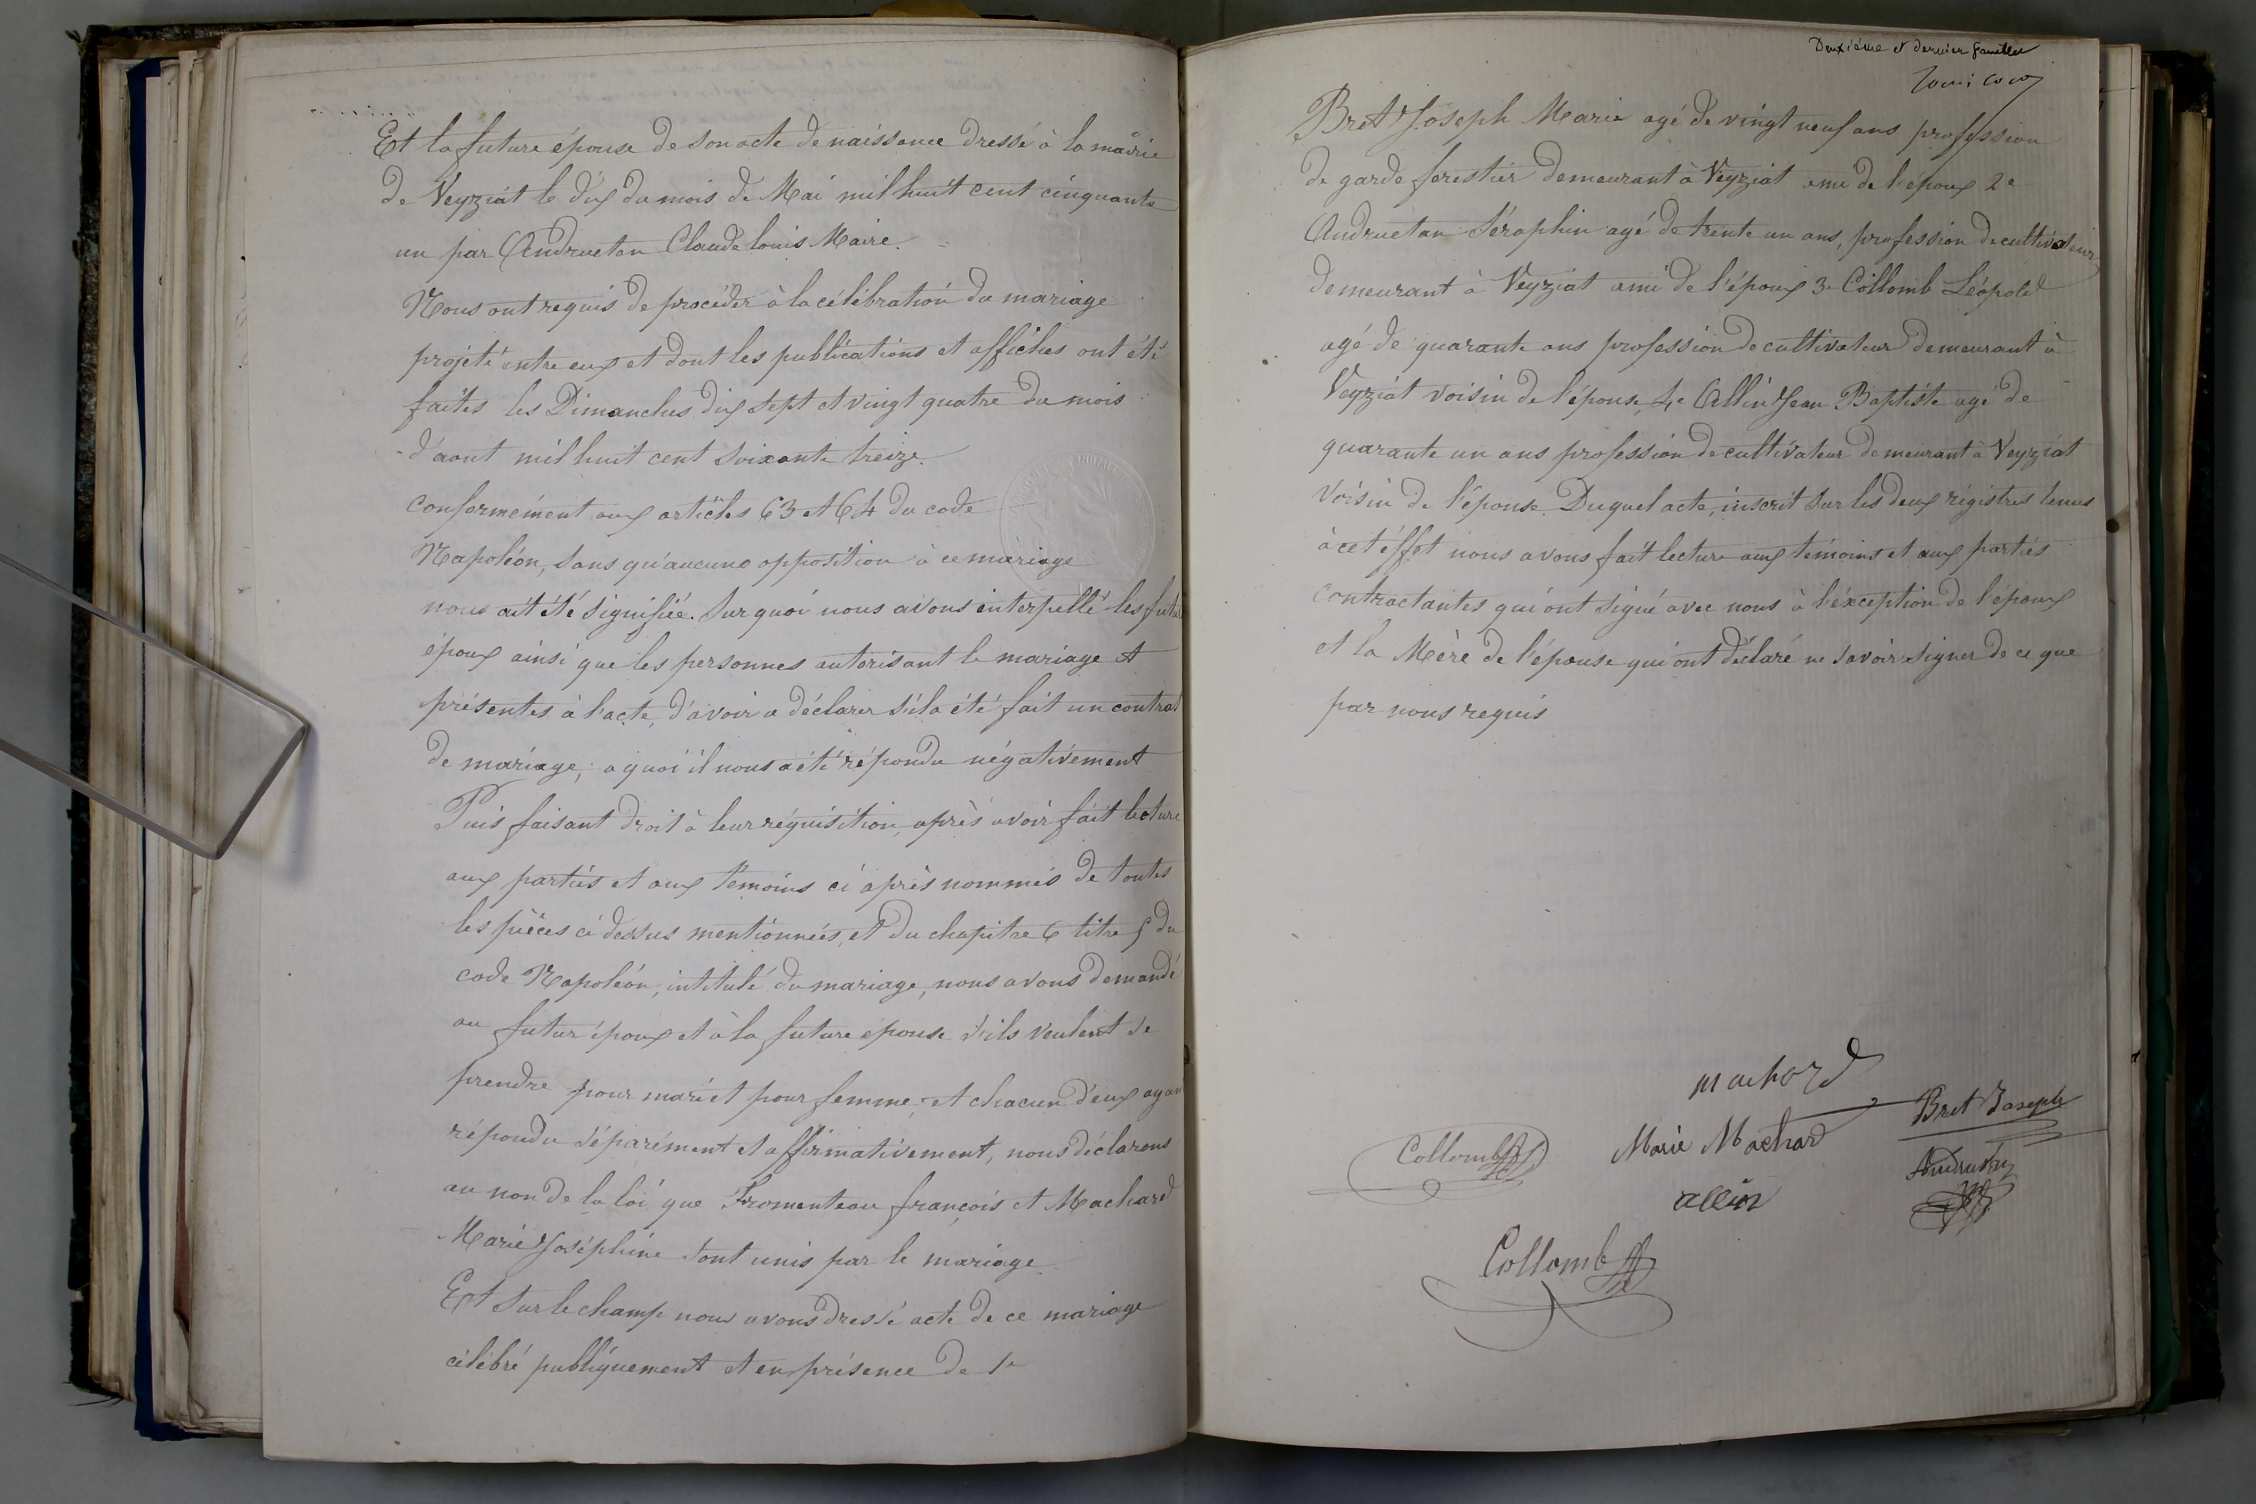 Et la future épouse de son acte de naissance dressé à la mairie
de Veyziat le dix du mois de Mai mil huit cent cinquante
un par Andruetan Claude Louis Maire.
Nous ont requis de procéder à la célébration du mariage
projeté entre eux et dont les publications et affiches ont été
faites les Dimanches dix sept et vingt quatre du mois
d'aout mil huit cent soixante treize.
conformément aux articles 63 et 64 du code
Napoléon, sans qu'aucune opposition à ce mariage
nous ait été signifiée. Sur quoi nous avons interpellé les futu
époux ainsi que les personnes autorisant le mariage et
présentes à l'acte, d'avoir a déclarer s'il a été fait un contrat
de mariage, a quoi il nous a été répondu négativement
Puis faisant droit à leur réquisition, après avoir fait lecture
aux parties et aux témoins ci après nommés de toutes
les pièces ci dessus mentionnées, et du chapitre 6 titre 5 du
code Napoléon, intitulé du mariage, nous avons demandé
au futur époux et à la future épouse s'ils veulent se
prendre pour mari et pour femme, et chacun d'eux ayan
répondu séparément et affirmativement, nous déclarons
au nom de la loi que Fromenteau françois et Machard
Marie Joséphine sont unis par le mariage.
Et sur le champ nous avons dressé acte de ce mariage
célébré publiquement et en présence de 1e
Deuxième et dernier feuillet
Bret Joseph Marie agé de vingt neuf ans profession
de garde forestier demeurant à Veyziat ami de l'époux 2e
Andruetan Séraphin agé de trente un ans, profession de cultivateur
demeurant à Veyziat ami de l'époux 3e Collomb Léopold
agé de quarante ans profession de cultivateur demeurant à
Veyziat voisin de l'épouse, 4e Allin Jean Baptiste agé de
quarante un ans profession de cultivateur demeurant à Veyziat
voisin de l'épouse. Duquel acte, inscrit sur les deux régistres tenus
à cet éffet nous avons fait lecture aux témoins et aux parties
contractantes qui ont signé avec nous à l'éxception de l'époux
et la Mère de l'épouse qui ont déclaré ne savoir signer de ce que
par nous requis
machard
Collomb
Marie Machard
Bret Joseph
Andruetan
allin
Collomb